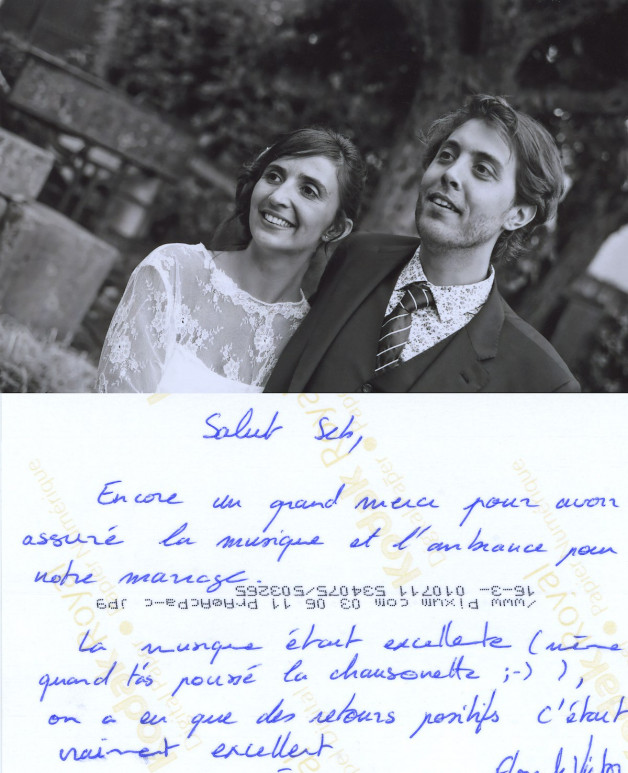 Salut Seb,
Encore un grand merci pour avoir
assuré la musique et l'ambiance pour
notre mariage.
/www Pixum com 03 06 11 PrAoAcPa-c JPG
16-3- 010711 534075/503265
La musique était excellente (même
quand t'as poussé la chansonette ;-) ),
on a eu que des retours positifs c'était
vraiment excellent
Kodak Royal
Digital Paper • Papier Numérique